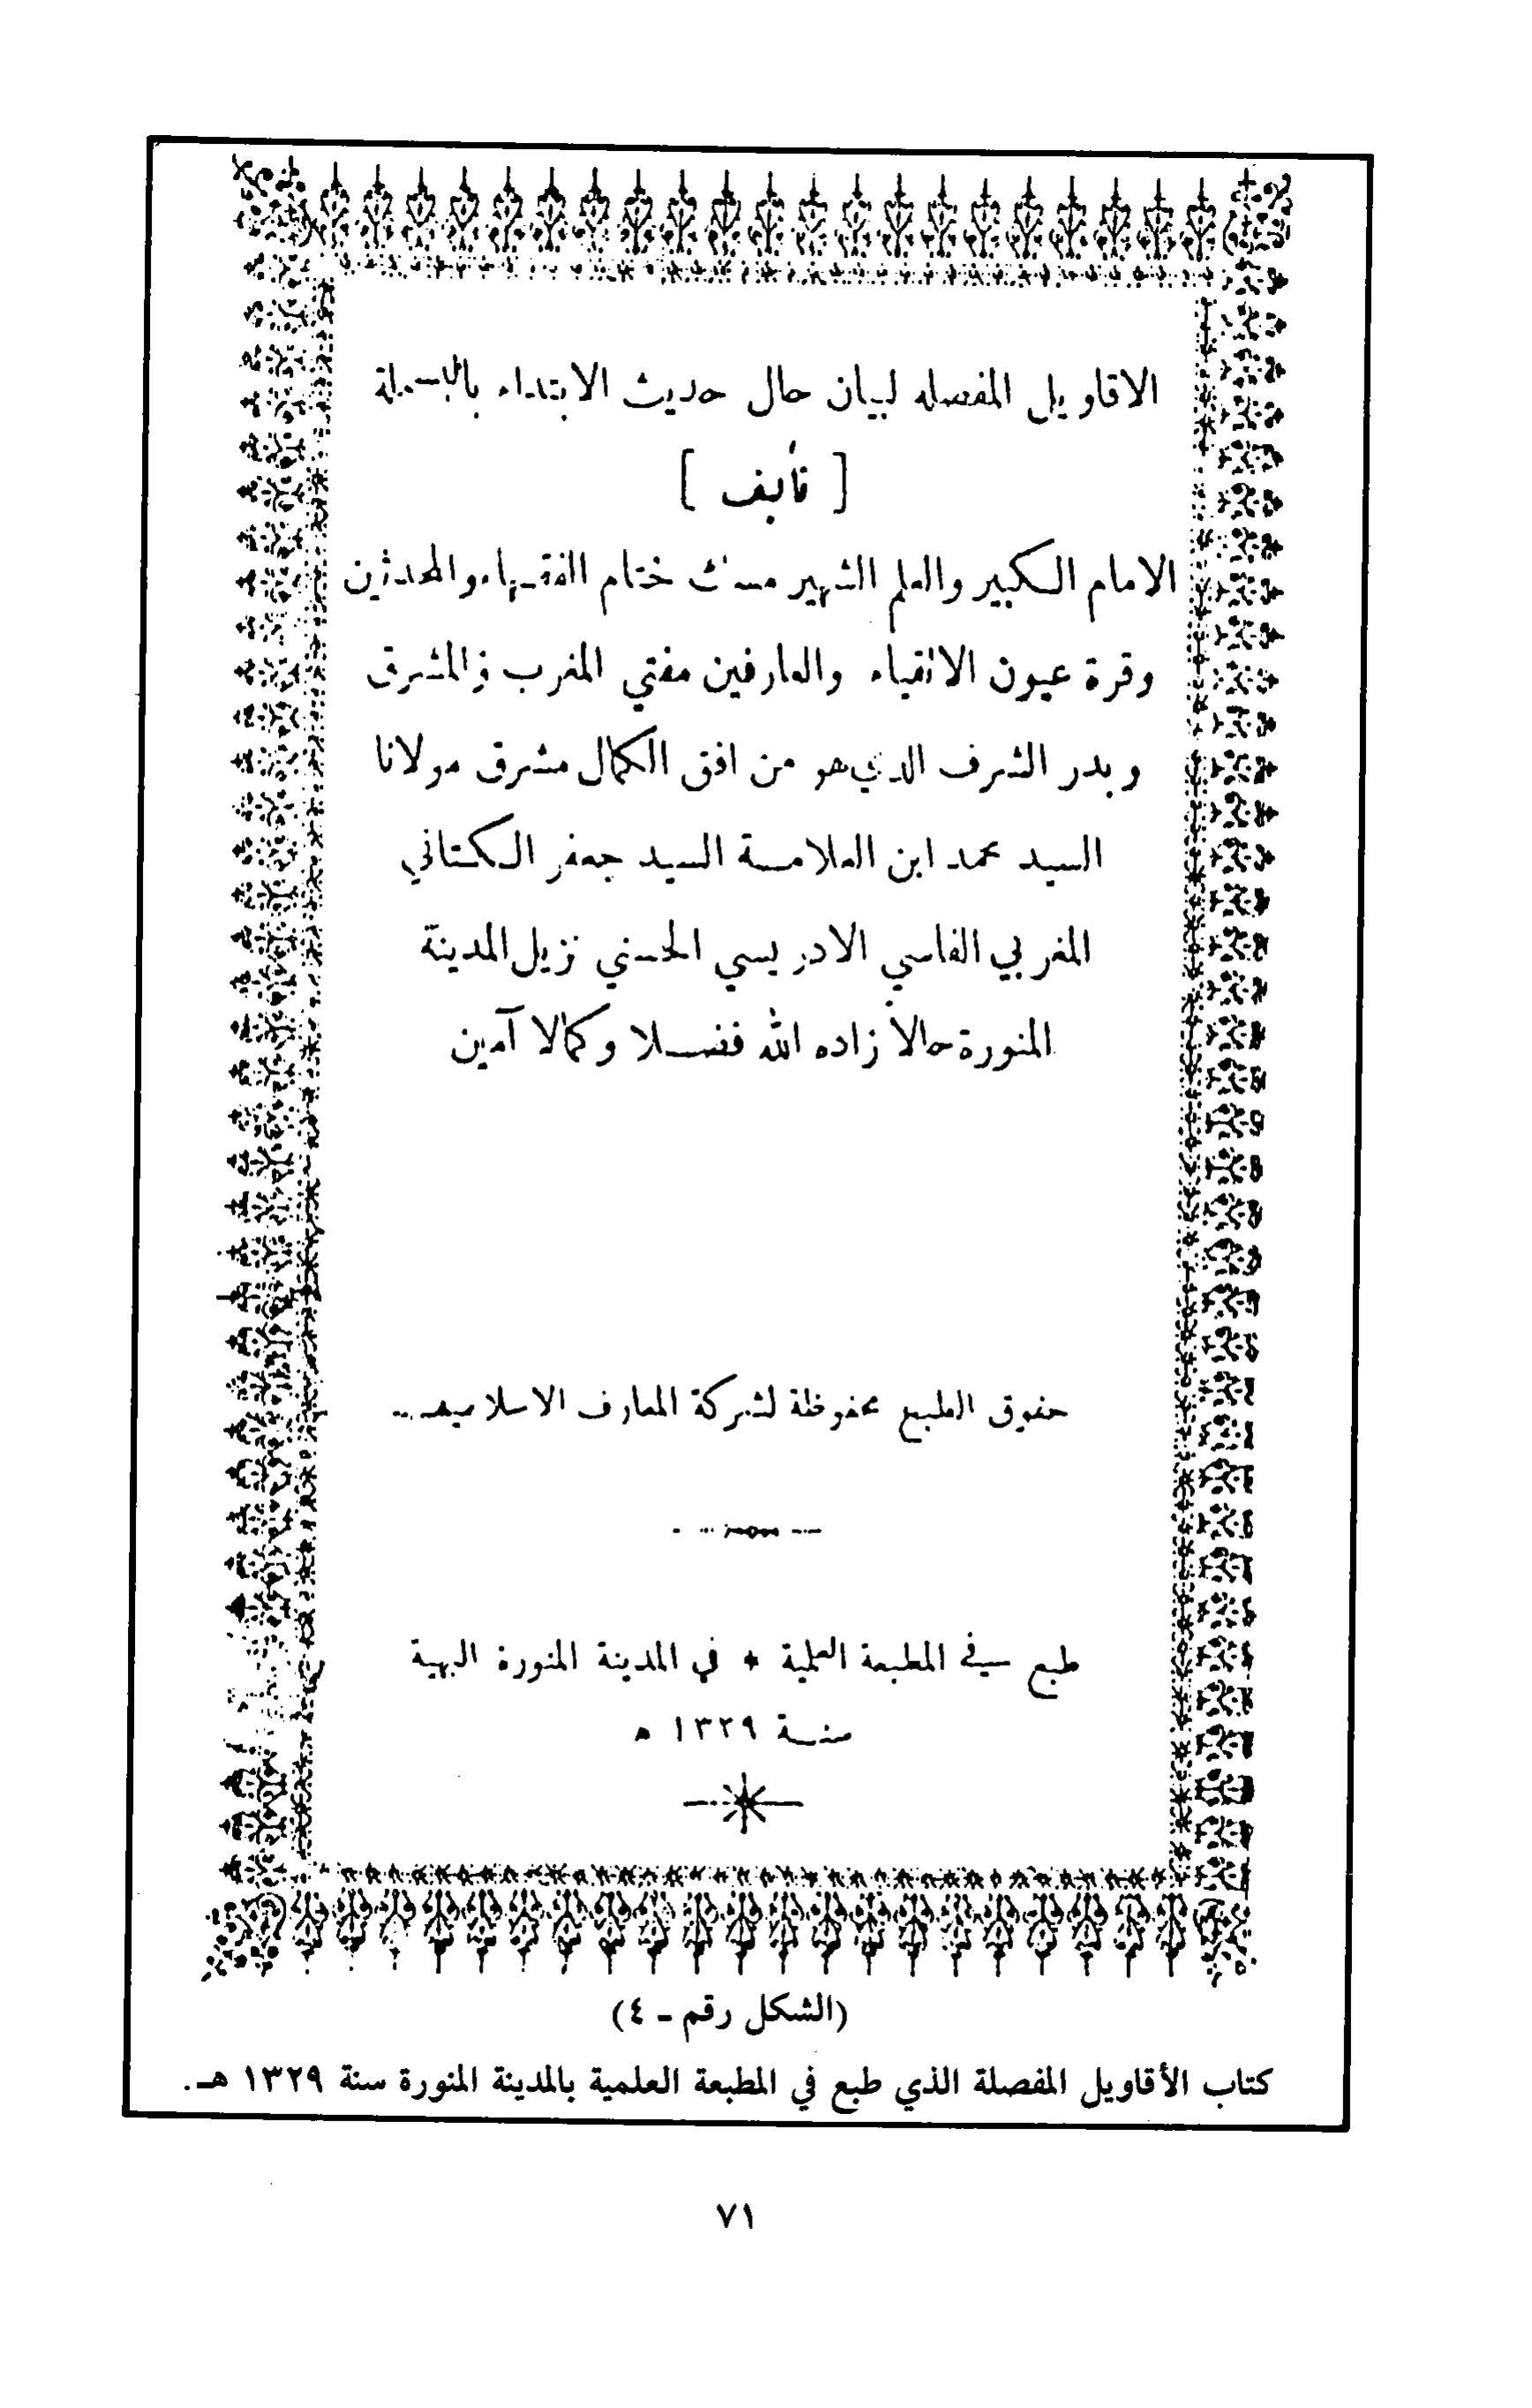 الاقاويل المفصله لبيان حال حديث الابتداء بالبسملة
[ تأليف ]
الامام الكبير والعلم الشهير مسك ختام الفقهاء والمحدثين
وقرة عيون الاتقياء والعارفين مفتي المغرب والمشرق
وبدر الشرف الذي هو من افق الكمال مشرق مولانا
السيد محمد ابن العلامة السيد جعفر الكتاني
المغربي الفاسي الادريسي الحسني نزيل المدينة
المنورة حالا زاده الله فضلا وكمالا آمين
حقوق الطبع محفوظة لشركة المعارف الاسلاميه
طبع في المطبعة العلمية * في المدينة المنورة البهية
سنة ١٣٢٩ ه
(الشكل رقم - ٤)
كتاب الأقاويل المفصلة الذي طبع في المطبعة العلمية بالمدينة المنورة سنة ١٣٢٩ هـ.
٧١